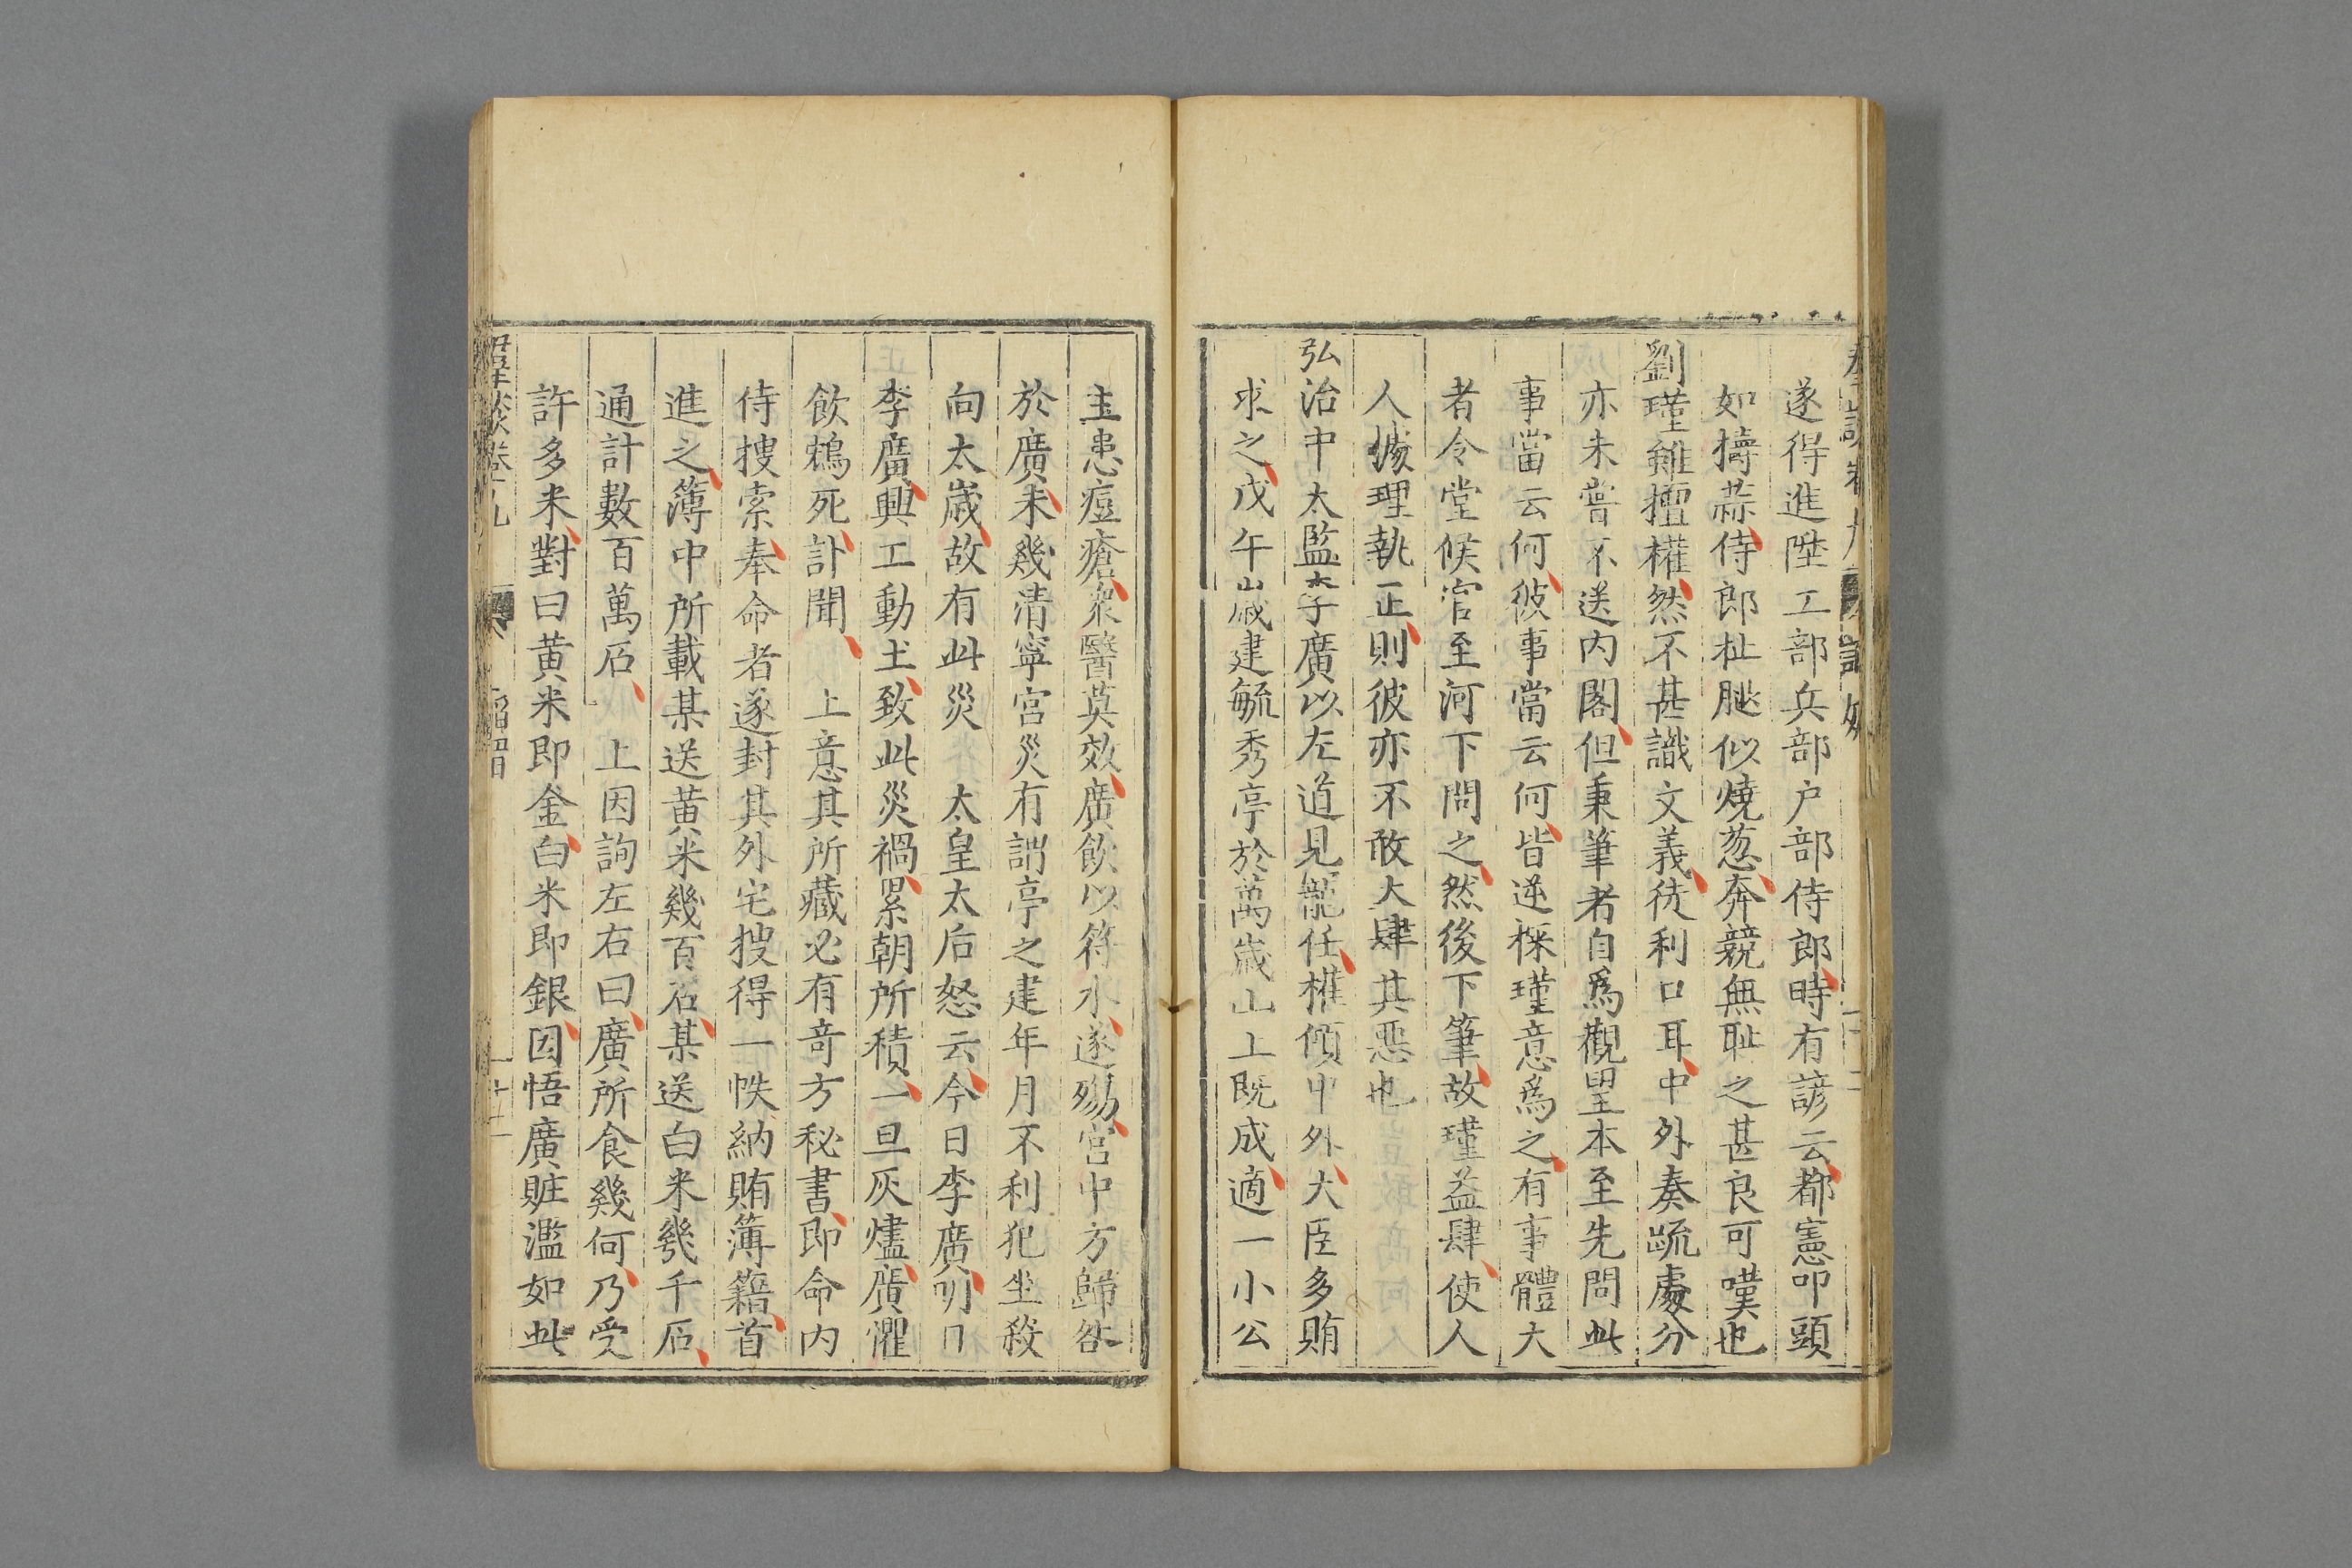 遂得進陞工部兵部户部侍郎時有諺云都憲叩頭
如擣蒜侍郎扯腿似燒葱奔競無恥之甚良可嘆也
劉瑾雖擅權然不甚識文義徒利口耳中外奏疏處分
亦未嘗不送内閣但秉筆者自爲觀望本至先問此
事當云何彼事當云何皆逆探瑾意爲之有事體大
者令堂候官至河下問之然後下筆故瑾益肆使人
人據理執正則彼亦不敢大肆其惡也
弘治中太監李廣以左道見寵任權傾中外大臣多賄
求之戊午歲建毓秀亭於萬歲山上既成適一小公
主患痘瘡衆醫莫效廣飲以符水遂殤宫中方歸咎
於廣未幾清寧宫災有謂亭之建年月不利犯坐殺
向太歲故有此災 太皇太后怒云今日李廣明日
李廣興工動土致此災禍累朝所積一旦灰燼廣懼
飲鴆死訃聞 上意其所藏必有竒方秘書即命内
侍搜索奉命者遂封其外宅搜得一帙納賄簿籍首
進之簿中所載某送黄米幾百石某送白米幾千石
通計數百萬石 上因詢左右曰廣所食幾何乃受
許多米對曰黄米即金白米即銀因悟廣贓濫如此